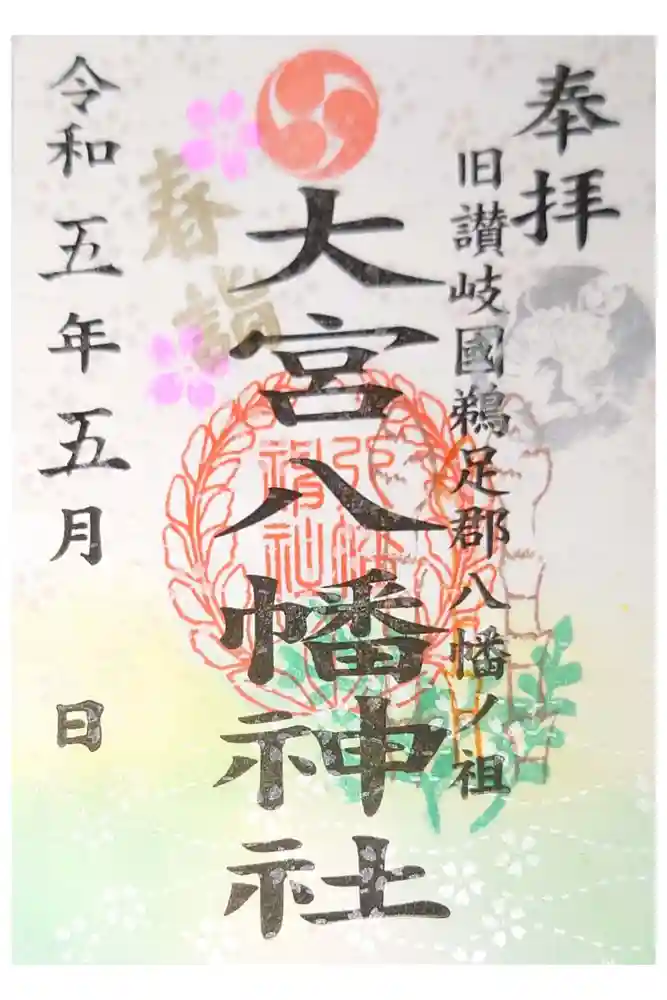 奉拝
旧讃岐國鵜足郡八幡ノ祖
大宮八幡神社
春詣
令和五年五月 日